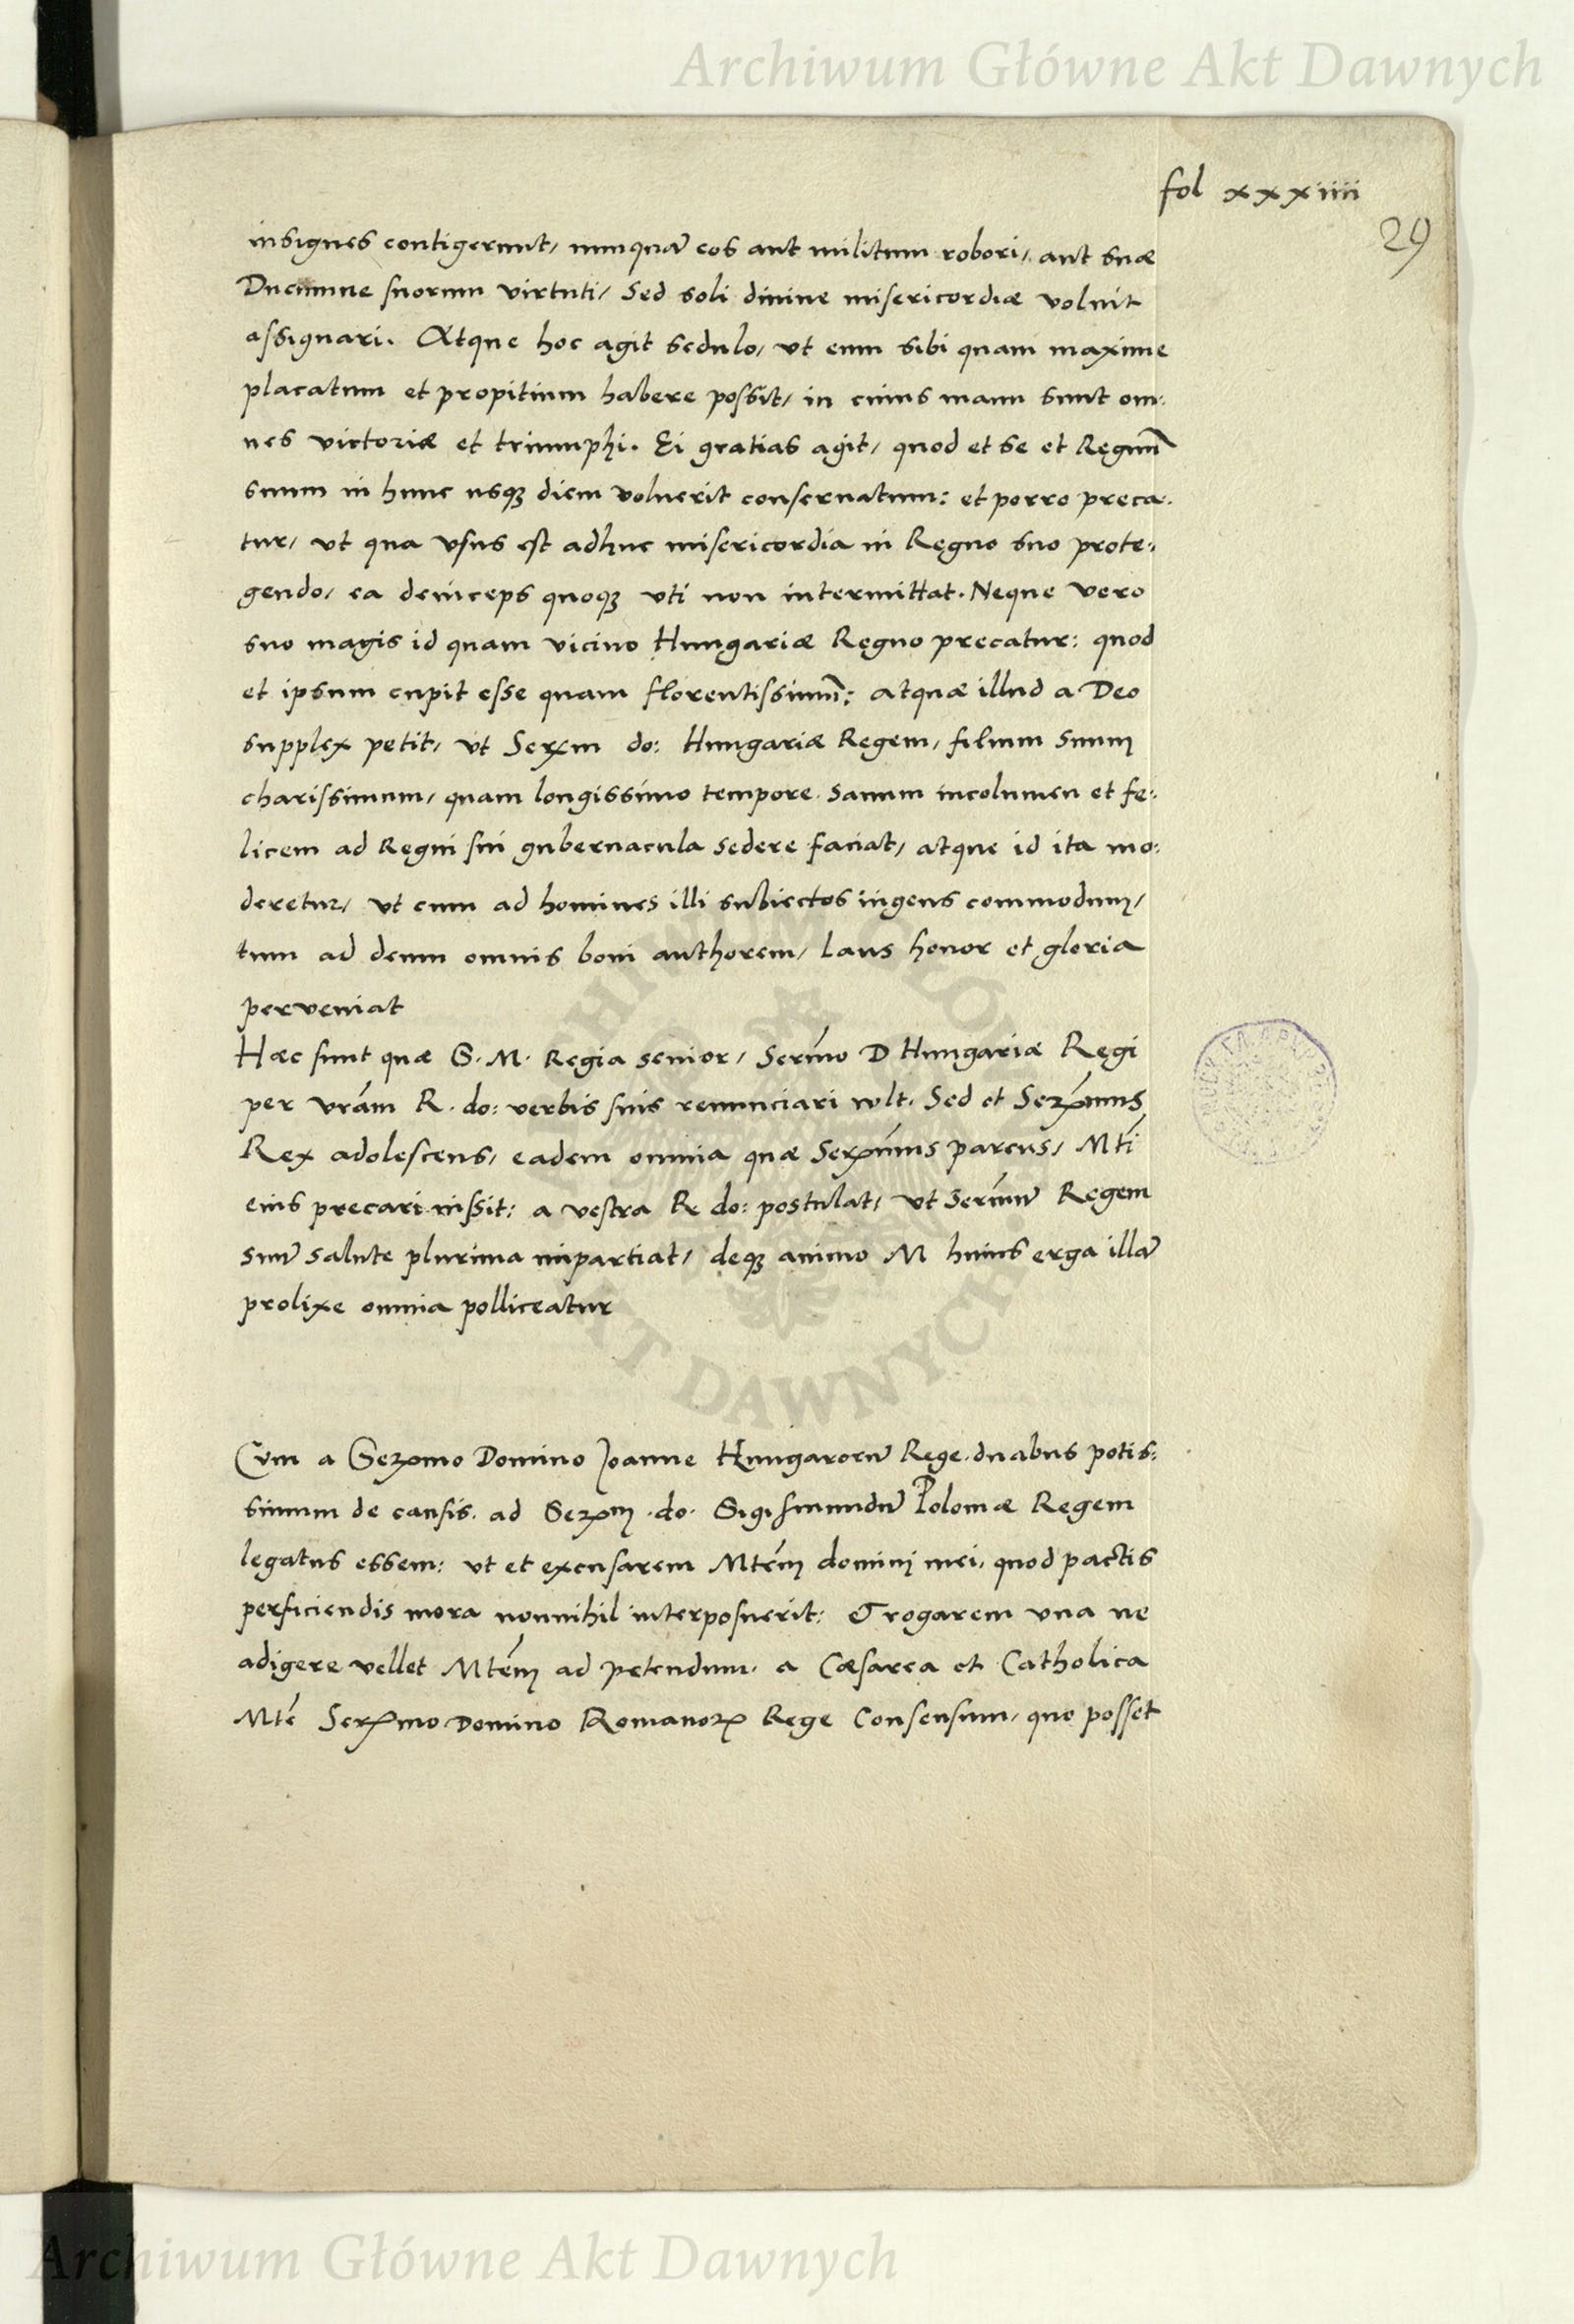 Archiwum Główne Akt Dawnych
fol xxxiiii
29
insignes contigerunt, nunquā eos aut militum robori, aut suæ
Ducumue suorum virtuti, Sed soli diuine misericordiæ voluit
assignari. Atque hoc agit sedulo, vt eum sibi quam maxime
placatum et propitium habere possit, in cuius manu sunt om:
nes victoriæ et triumphi. Ei gratias agit, quod et se et Regnū
suum in hunc usqȝ diem voluerit conseruatum: et porro preca.
tur, vt qua vsus est adhuc misericordia in Regno suo prote:
gendo, ea deinceps quoqȝ vti non intermittat. Neque vero
suo magis id quam vicino Hungariæ Regno precatur: quod
et ipsum cupit esse quam florentissimū: atquæ illud a Deo
supplex petit, vt Serm do: Hungariæ Regem, filium suum
charissimum, quam longissimo tempore sanum incolumen et fe:
licem ad Regni sui gubernacula sedere faciat, atque id ita mo:
deretur, vt cum ad homines illi subiectos ingens commodum,
tum ad deum omnis boni authorem, Laus honor et gloria
perveniat
Hæc sunt quæ S. M. Regia senior, Sermo D Hungariæ Regi
per vrām R. do: verbis suis renunciari wlt. Sed et Sermus
Rex adolescens, eadem omnia quæ Sermus parens, Mti
eius precari iussit: a vestra R do: postulat, vt Sermū Regem
suū salute plurima impartiat, deqȝ animo M huius erga illā
prolixe omnia polliceatur
Cvm a Sermo Domino Joanne Hungarorū Rege duabus potis:
simum de causis, ad Serm do. Sigismundū Poloniæ Regem
legatus essem: vt et excusarem Mtēm domini mei, quod pactis
perficiendis mora nonnihil interposuerit: Et rogarem vna ne
adigere vellet Mtēm ad petendum, a Cæsarea et Catholica
Mtē Sermo Domino Romanorꝝ Rege Consensum, quo posset
Archiwum Główne Akt Dawnych